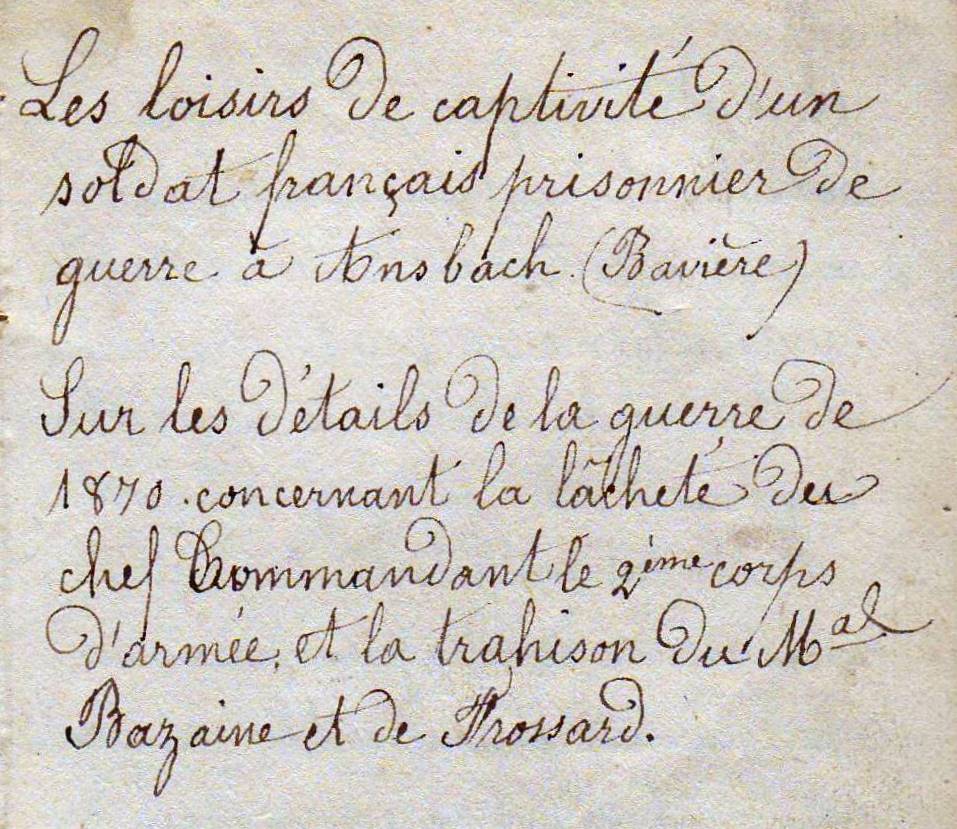 Les loisirs de captivité d'un
soldat français prisonnier de
guerre à Ansbach (Bavière)
Sur les détails de la guerre de
1870 concernant la lâcheté du
chef Commandant le 2ème corps
d'armée, et la trahison du Mal
Bazaine et de Frossard.